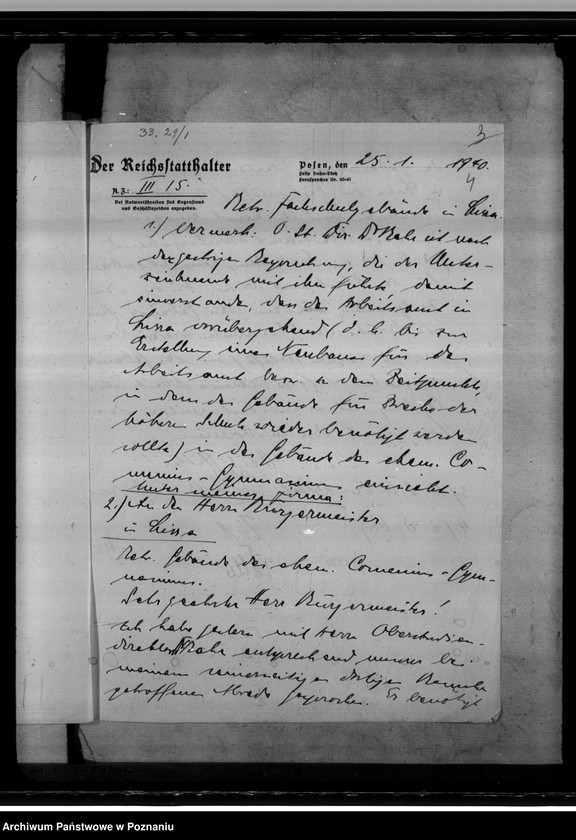 33. 29/1
3
Der Reichsstatthalter
Posen, den 25. 1. 1940.
4
A.Z.: III 15.
Bei Antwortschreiben stets Gegenstand
und Geschäftszeichen anzugeben.
Betr. Fachschulgebäude in Lissa.
1.) Vermerk: O. St. Dir. Dr. ist nach
der gestrigen Besprechung, die der Unter-
zeichnete mit ihm führte, damit
einverstanden, dass das Arbeitsamt in
Lissa vorübergehend (d. h. bis zur
Erstellung eines Neubaus für das
Arbeitsamt bezw. zu dem Zeitpunkt,
in dem das Gebäude für Zwecke der
höheren Schule wieder benötigt werden
sollte) in das Gebäude des ehem. Co-
menius-Gymnasiums einzieht.
Unter meiner Firma:
2.) An den Herrn Bürgermeister
in Lissa
Betr. Gebäude des ehem. Comenius-Gym-
nasiums.
Sehr geehrter Herr Bürgermeister!
Ich habe gestern mit Herrn Oberstudien-
direktor Dr. entsprechend unserer bei
meinem seinerzeitigen dortigen Besuche
getroffenen Abrede gesprochen. Er benötigt
Archiwum Państwowe w Poznaniu